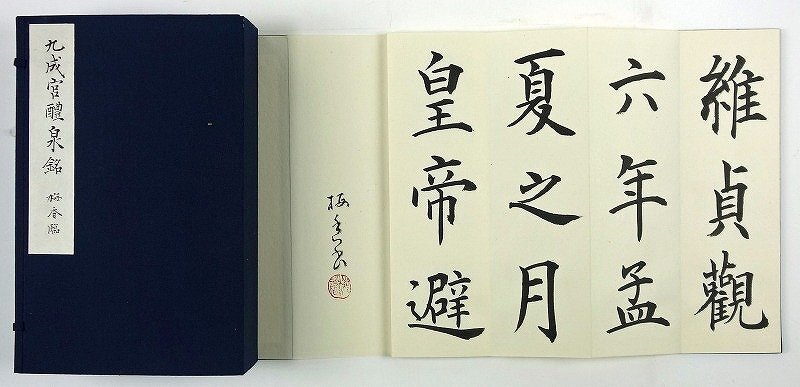 九成宮醴泉銘 梅香臨
維貞觀
六年孟
夏之月
皇帝避
梅香書